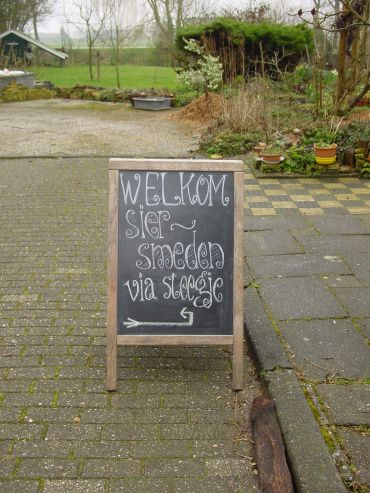 WELKOM
sier~
smeden
via steegje